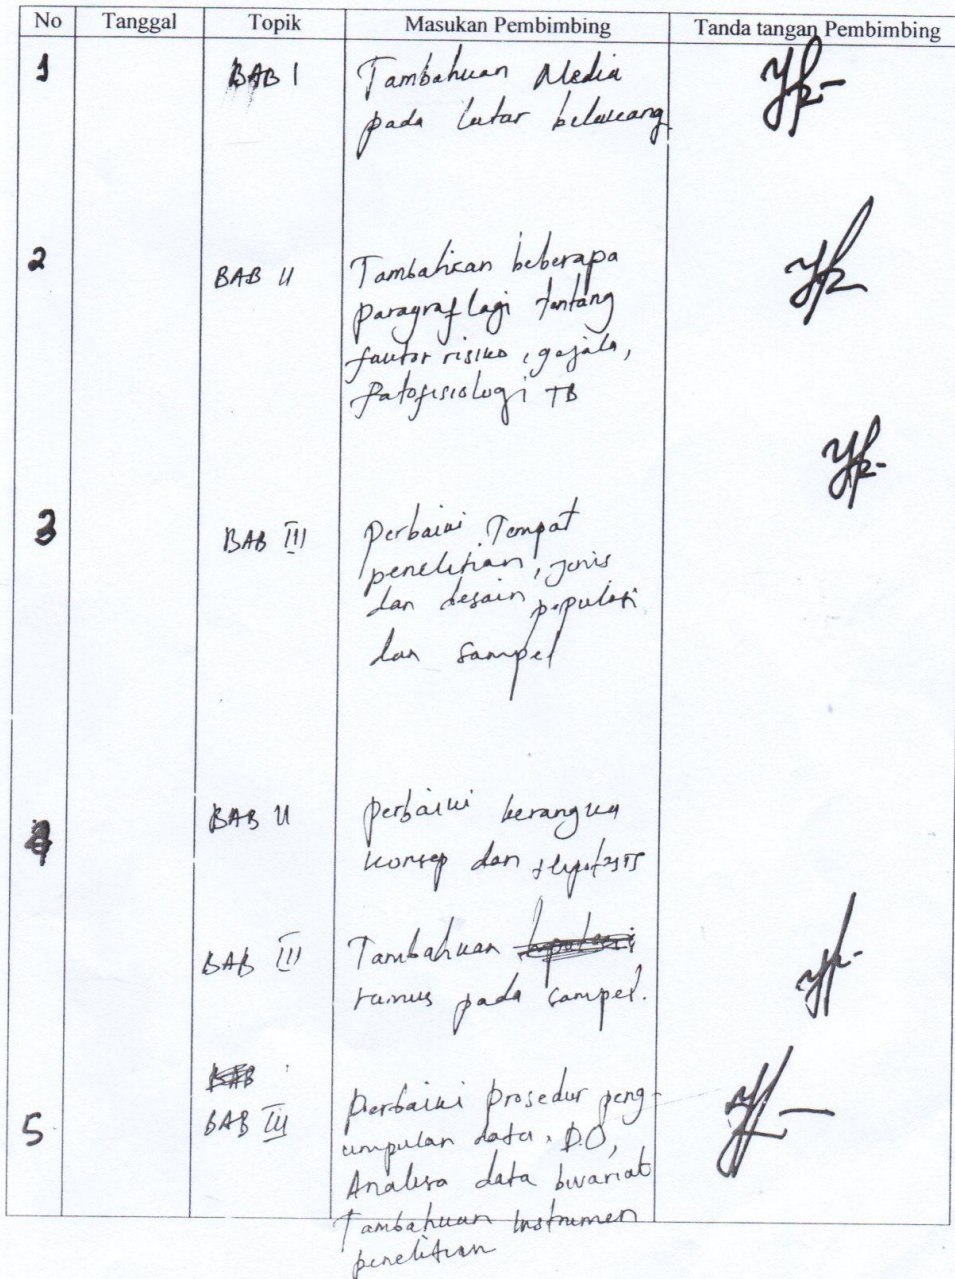 No Tanggal Topik Masukan Pembimbing Tanda tangan Pembimbing
1 BAB I Tambahkan Media
pada latar belakang
2 BAB II Tambahkan beberapa
paragraf lagi tentang
faktor risiko, gejala,
Patofisiologi TB
3 BAB III Perbaiki Tempat
penelitian, jenis
dan desain, populasi
dan sampel
4 BAB II perbaiki kerangka
konsep dan Hipotesis
BAB III Tambahkan
rumus pada sampel.
BAB
5 BAB III Perbaiki prosedur peng-
umpulan data, DO,
Analisa data bivariat
Tambahkan Instrumen
penelitian